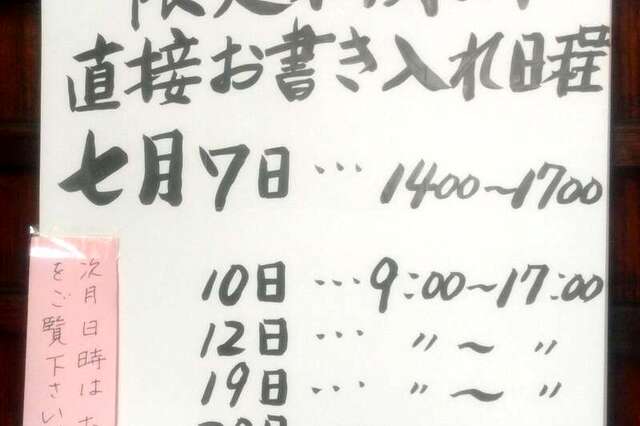 直接お書き入れ日程
七月7日 … 1400〜1700
10日 … 9:00〜17:00
12日 … 〃 〜 〃
19日 … 〃 〜 〃
次月日時は
をご覧下さい